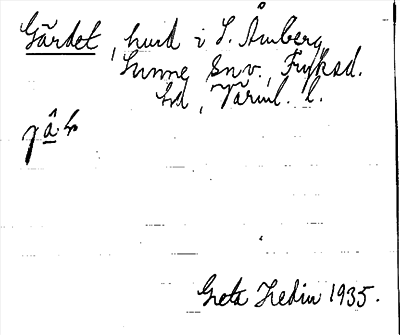 Gärdet, hmd i S. Åmberg,
Sunne sn. v., Fryksd.
hd, Värml. l.
Greta Hedin 1935.